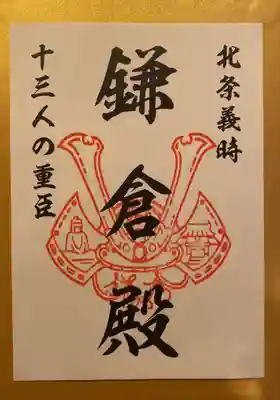 北条義時
鎌倉殿
十三人の重臣